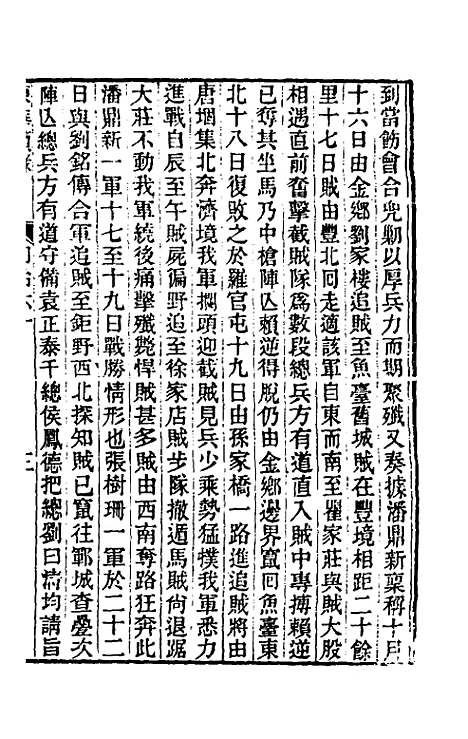 到當飭會合兜剿以厚兵力而期聚殲又奏據潘鼎新稟稱十月
十六日由金鄉劉家樓追賊至魚臺舊城賊在豐境相距二十餘
里十七日賊由豐北回走適該軍自東而南至瞿家莊與賊大股
相遇直前奮擊截賊隊爲數段總兵方有道直入賊中專搏賴逆
已奪其坐馬乃中槍陣亾賴逆得脫仍由金鄉邊界竄回魚臺東
北十八日復敗之於羅官屯十九日由孫家橋一路進追賊將由
唐堌集北奔濟境我軍攔頭迎截賊見兵少乘勢猛撲我軍悉力
進戰自辰至午賊屍徧野追至徐家店賊步隊撤遁馬賊尙退踞
大莊不動我軍繞後痛擊殲斃悍賊甚多賊由西南奪路狂奔此
潘鼎新一軍十七至十九日戰勝情形也張樹珊一軍於二十二
日與劉銘傳合軍追賊至鉅野西北探知賊已竄往鄆城查疊次
陣亾總兵方有道守備袁正泰千總侯鳳德把總劉曰清均請旨
三